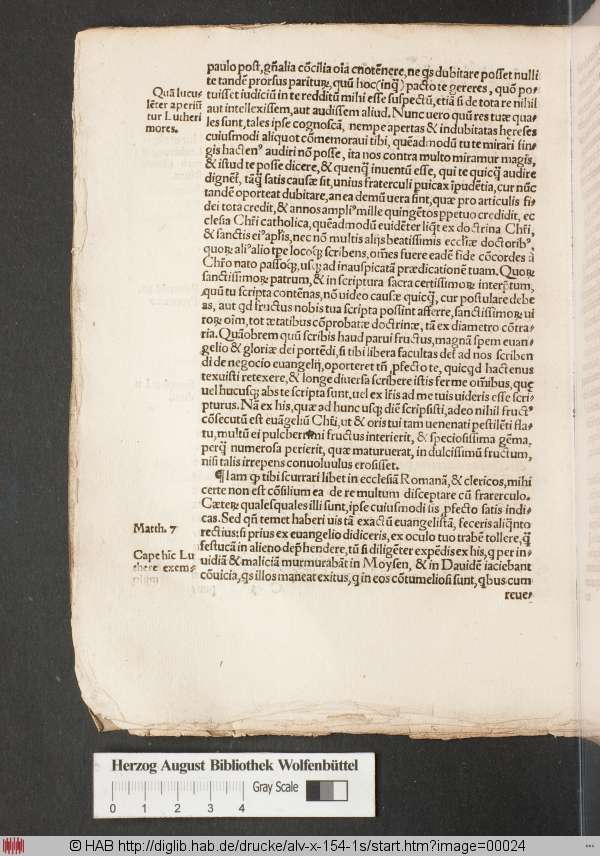 paulo post, gñalia cõcilia oĩa cnotẽnere, ne qs dubitare posset nulli
te tandẽ prorsus pariturꝝ, quũ hoc (inq̃) pacto te gereres, quõ po-
tuisset iudiciũ in te redditũ mihi esse suspectũ, etiã si de tota re nihil
aut intellexissem, aut audissem aliud. Nunc vero quũ res tuæ qua-
les sunt, tales ipse cognoscã, nempe apertas & indubitatas hereses
cuiusmodi aliquot cõmemoraui tibi, quẽadmodũ tu te mirari sin-
gis hactenꝰ audiri nõ posse, ita nos contra multo miramur magis,
& istud te posse dicere, & quenq̃ inuentũ esse, qui te quicq̃ audire
dignet̃, tãq̃ satis causæ sit, unius fraterculi puicax ĩpudẽtia, cur nũc
tandẽ oporteat dubitare, an ea demũ uera sint, quæ pro articulis fi-
dei tota credit, & annos ampliꝰ mille quingẽtos ppetuo credidit, ec
clesia Chr̃i catholica, quẽadmodũ euidẽter liq̃t ex doctrina Chr̃i,
& sanctis eiꝰ apl̃is, nec nõ multis alijs beatissimis eccl̃iæ doctoribꝰ,
quoꝝ aliꝰ alio tp̃e locoq̃ꝫ scribens, oẽs fuere eadẽ fide cõcordes à
Chr̃o nato passoq̃ꝫ, usq̃ꝫ ad inauspicatã prædicationẽ tuam. Quoꝝ
sanctissimoꝝ patrum, & in scriptura sacra certissimoꝝ interp̃tum,
quũ tu scripta contẽnas, nõ video causæ quicq̃, cur postulare debe
as, aut qd fructus nobis tua scripta possint afferre, sanctissimoꝝ ui
roꝝ oĩm, tot ætatibus cõprobatæ doctrinæ, tã ex diametro cõtra-
ria. Quãobrem quũ scribis haud parui fructus, magnã spem euan-
gelio & gloriæ dei portẽdi, si tibi libera facultas det̃ ad nos scriben
di de negocio euangelij, oporteret tñ pfecto te, quicqd hactenus
texuisti retexere, & longe diuersa scribere istis ferme oĩbus, quę
vel hucusq̃ꝫ abs te scripta sunt, uel ex l̃ris ad me tuis uideris esse scri-
pturus. Nã ex his, quæ ad hunc usq̃ꝫ diẽ scripsisti, adeo nihil fructꝰ
cõsecutũ est euãgeliũ Chr̃i, ut & oris tui tam uenenati pestilẽti fla-
tu, multũ ei pulcherrimi fructus interierit, & speciosissima gẽma,
perq̃ numerosa perierit, quæ maturuerat, in dulcissimũ fructum,
nisi talis irrepens conuoluulus erosisset.
¶ Iam q̃ tibi scurrari libet in ecclesiã Romanã, & clericos, mihi
certe non est cõsilium ea de re multum disceptare cũ fraterculo.
Cæteꝝ qualesquales illi sunt, ipse cuiusmodi sis pfecto satis indi-
cas. Sed qñ temet haberi uis tã exactũ euangelistã, feceris aliq̃nto
rectius: si prius ex euangelio didiceris, ex oculo tuo trabẽ tollere, q̃
festucã in alieno dep̃hendere, tũ si diligẽter expẽdis ex his, q̃ per in-
uidiã & maliciã murmurabãt in Moysen, & in Dauidẽ iaciebant
cõuicia, qs illos maneat exitus, q̃ in eos cõtumeliosi sunt, qbus cum
reue-
Quã lucu-
lẽter aperiũ
tur Lutheri
mores.
Matth. 7
Cape hic Lu
there exem-
plum
Herzog August Bibliothek Wolfenbüttel
Gray Scale
0 1 2 3 4
© HAB http://diglib.hab.de/drucke/alv-x-154-1s/start.htm?image=00024